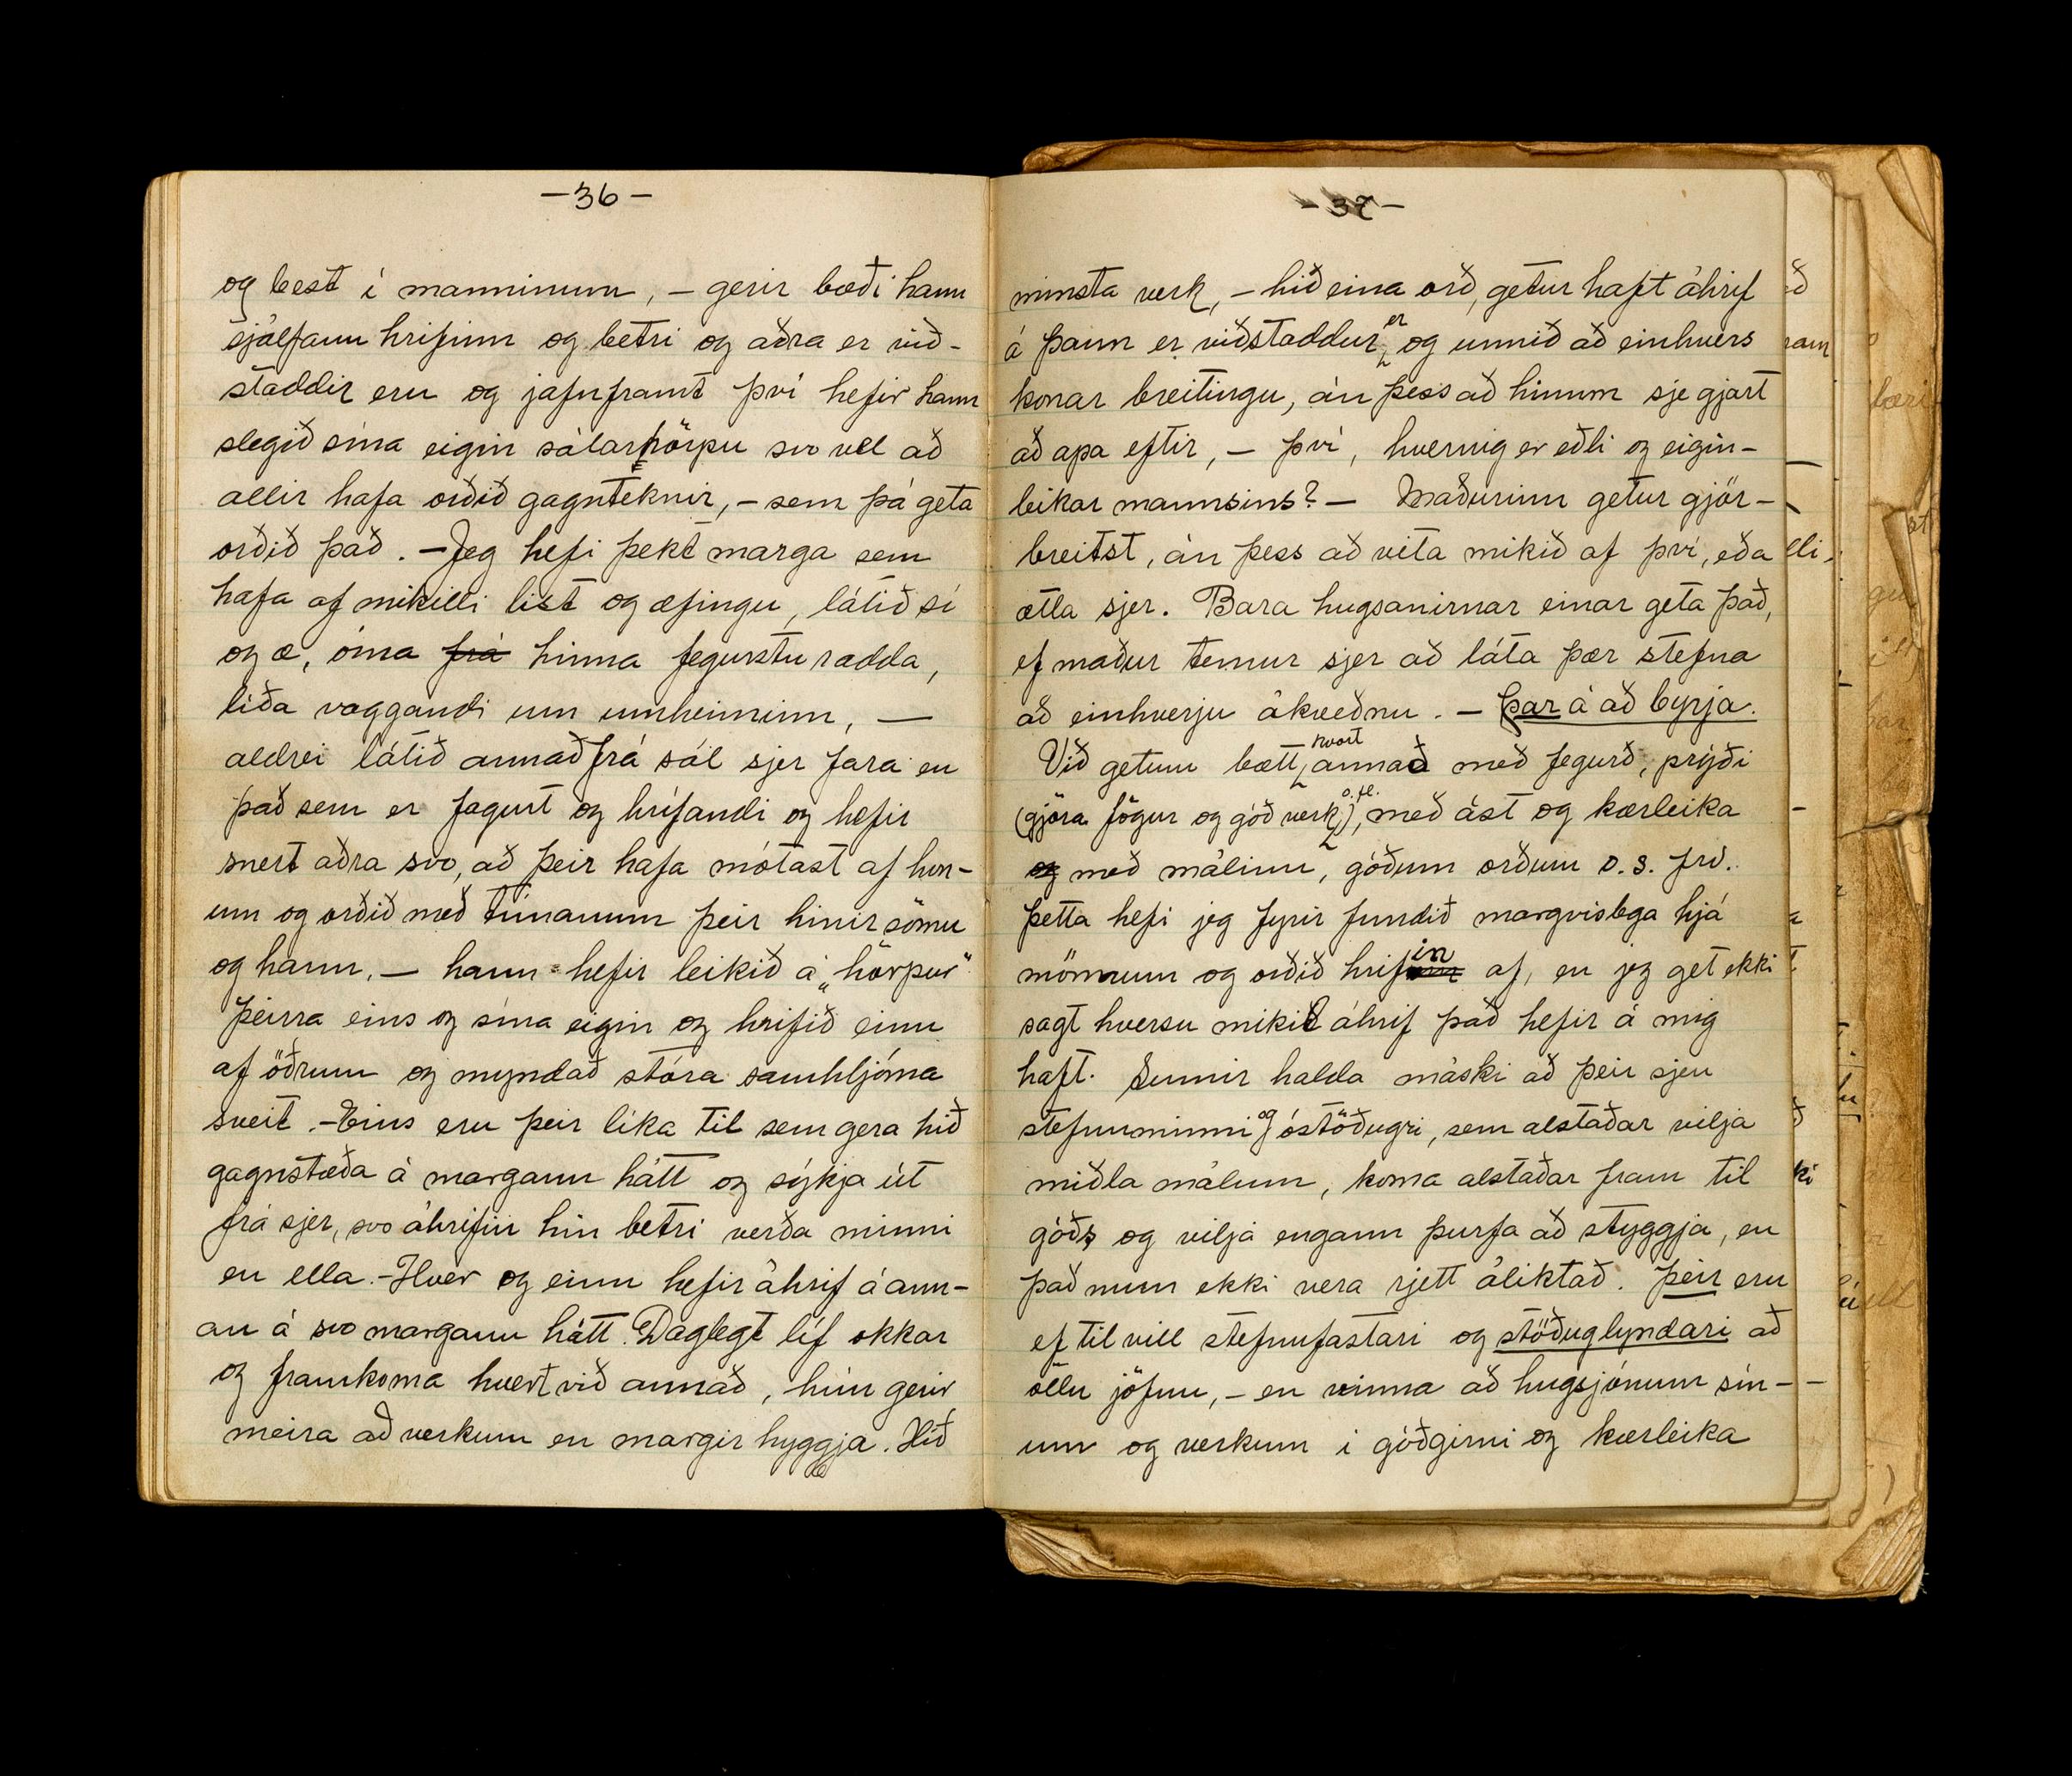 -36-
og best í manninum, - gerir bæði hann
sjálfann hrifinn og betri og aðra er við-
staddir eru og jafnframt því hefir hann
slegið sína eigin sálarhörpu svo vel að
allir hafa orðið gagnteknir, - sem þá geta
orðið það. - Jeg hefi þekt marga sem
hafa af mikilli list og æfingu, látið sí
og æ, óma frá hinna fegurstu radda,
líða vaggandi um umheiminn, -
aldrei látið annað frá sál sjer fara en
það sem er fagurt og hrífandi og hefir
snert aðra svo, að þeir hafa mótast af hon-
um og orðið með tímanum þeir hinir sömu
og hann. - hann hefir leikið á „hörpur"
þeirra eins og sína eigin og hrifið einn
af öðrum og myndað stóra samhljóma
sveit. - Eins eru þeir líka til sem gera hið
gagnstæða á margann hátt og sýkja út
frá sjer, svo áhrifin hin betri verða minni
en ella. - Hver og einn hefir áhrif á ann-
an á svo margann hátt. Daglegt líf okkar
og framkoma hvert við annað, hún gerir
meira að verkum en margir hyggja. Hið
-37-
minsta verk, - hið eina orð, getur haft áhrif
á þann er viðstaddur er og unnið að einhvers
konar breitingu, án þess að hinum sje gjart
að apa eftir, - því, hvernig er eðli og eigin-
leikar mannsins? - Maðurinn getur gjör-
breitst, án þess að vita mikið af því, eða
ætla sjer. Bara hugsanirnar einar geta það,
ef maður temur sjer að láta þær stefna
að einhverju ákveðnu. - Þar á að byrja.
Við getum bætt hvort annað með fegurð, prýði
(gjöra fögur og góð verk o.fl.), með ást og kærleika
og með málinu, góðum orðum o.s.frv.
Þetta hefi jeg fyrir fundið margvislega hjá
mönnum og orðið hrifin af, en jeg get ekki
sagt hversu mikil áhrif það hefir á mig
haft. Sumir halda máski að þeir sjeu
stefnuminni og óstöðugri, sem alstaðar vilja
miðla málum, koma alstaðar fram til
góðs og vilja engann þurfa að styggja, en
það mun ekki vera rjett áliktað. Þeir eru
ef til vill stefnufastari og stöðuglyndari að
öllu jöfnu, - en vinna að hugsjónum sín-
um og verkum í góðgirni og kærleika